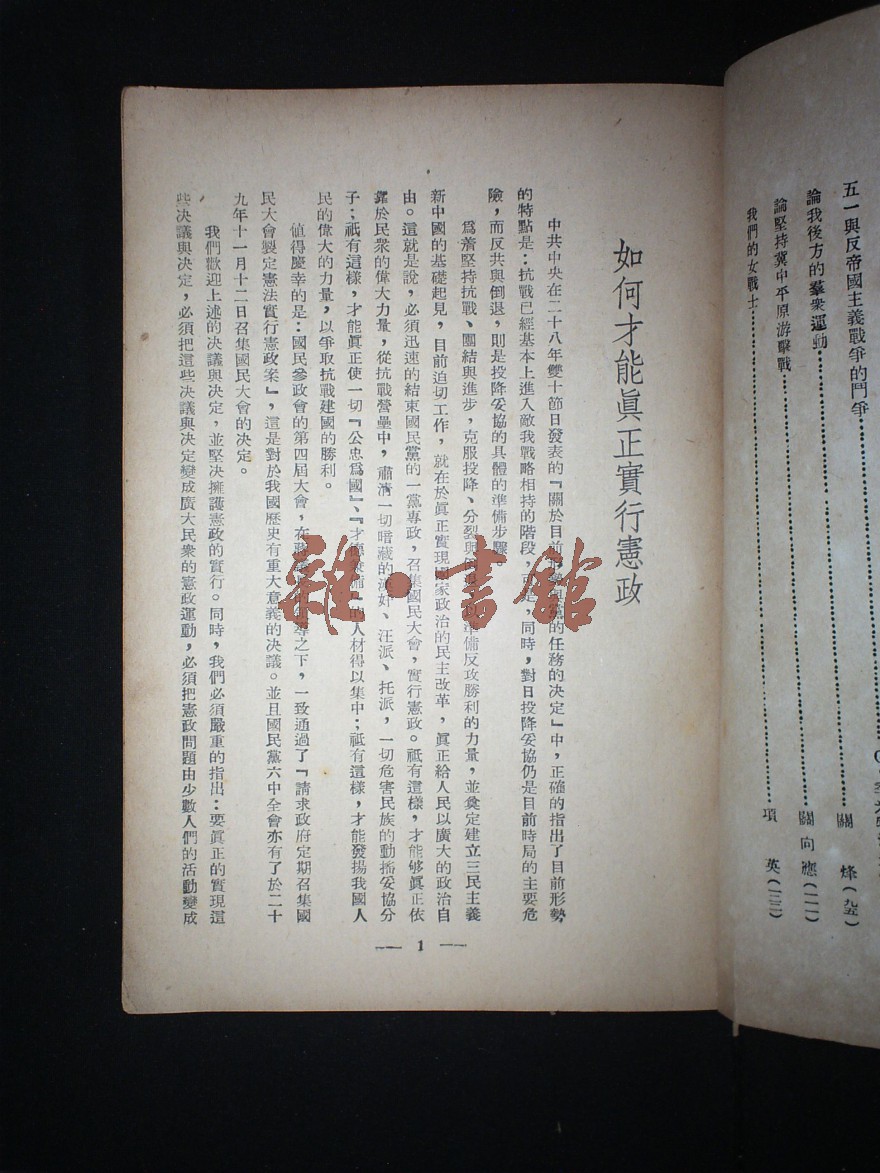 五一與反帝國主義戰爭的鬥爭
論我後方的羣衆運動……關　烽(九五)
論堅持冀中平原游擊戰……關向應(一一一)
我們的女戰士……項　英(一二二)
如何才能眞正實行憲政
中共中央在二十八年雙十節日發表的『關於目前形勢與黨的任務的決定』中，正確的指出了目前形勢
的特點是：抗戰已經基本上進入敵我戰略相持的階段，可是，同時，對日投降妥協仍是目前時局的主要危
險，而反共與倒退，則是投降妥協的具體的準備步驟。
爲着堅持抗戰、團結與進步，克服投降、分裂與準備反攻勝利的力量，並奠定建立三民主義
新中國的基礎起見，目前迫切工作，就在於眞正實現國家政治的民主改革，眞正給人民以廣大的政治自
由。這就是說，必須迅速的結束國民黨的一黨專政，召集國民大會，實行憲政。祗有這樣，才能够眞正依
靠於民衆的偉大力量，從抗戰營壘中，肅清一切暗藏的漢奸、汪派、托派，一切危害民族的動搖妥協分
子；祗有這樣，才能眞正使一切『公忠爲國』、『才德兼備』的人材得以集中；祗有這樣，才能發揚我國人
民的偉大的力量，以爭取抗戰建國的勝利。
値得慶幸的是：國民參政會的第四屆大會，在領導之下，一致通過了『請求政府定期召集國
民大會製定憲法實行憲政案』，這是對於我國歷史有重大意義的决議。並且國民黨六中全會亦有了於二十
九年十一月十二日召集國民大會的决定。
我們歡迎上述的決議與決定，並堅決擁護憲政的實行。同時，我們必須嚴重的指出：要眞正的實現這
些決議與決定，必須把這些決議與決定變成廣大民衆的憲政運動，必須把憲政問題由少數人們的活動變成
— 1 —
雜·書館